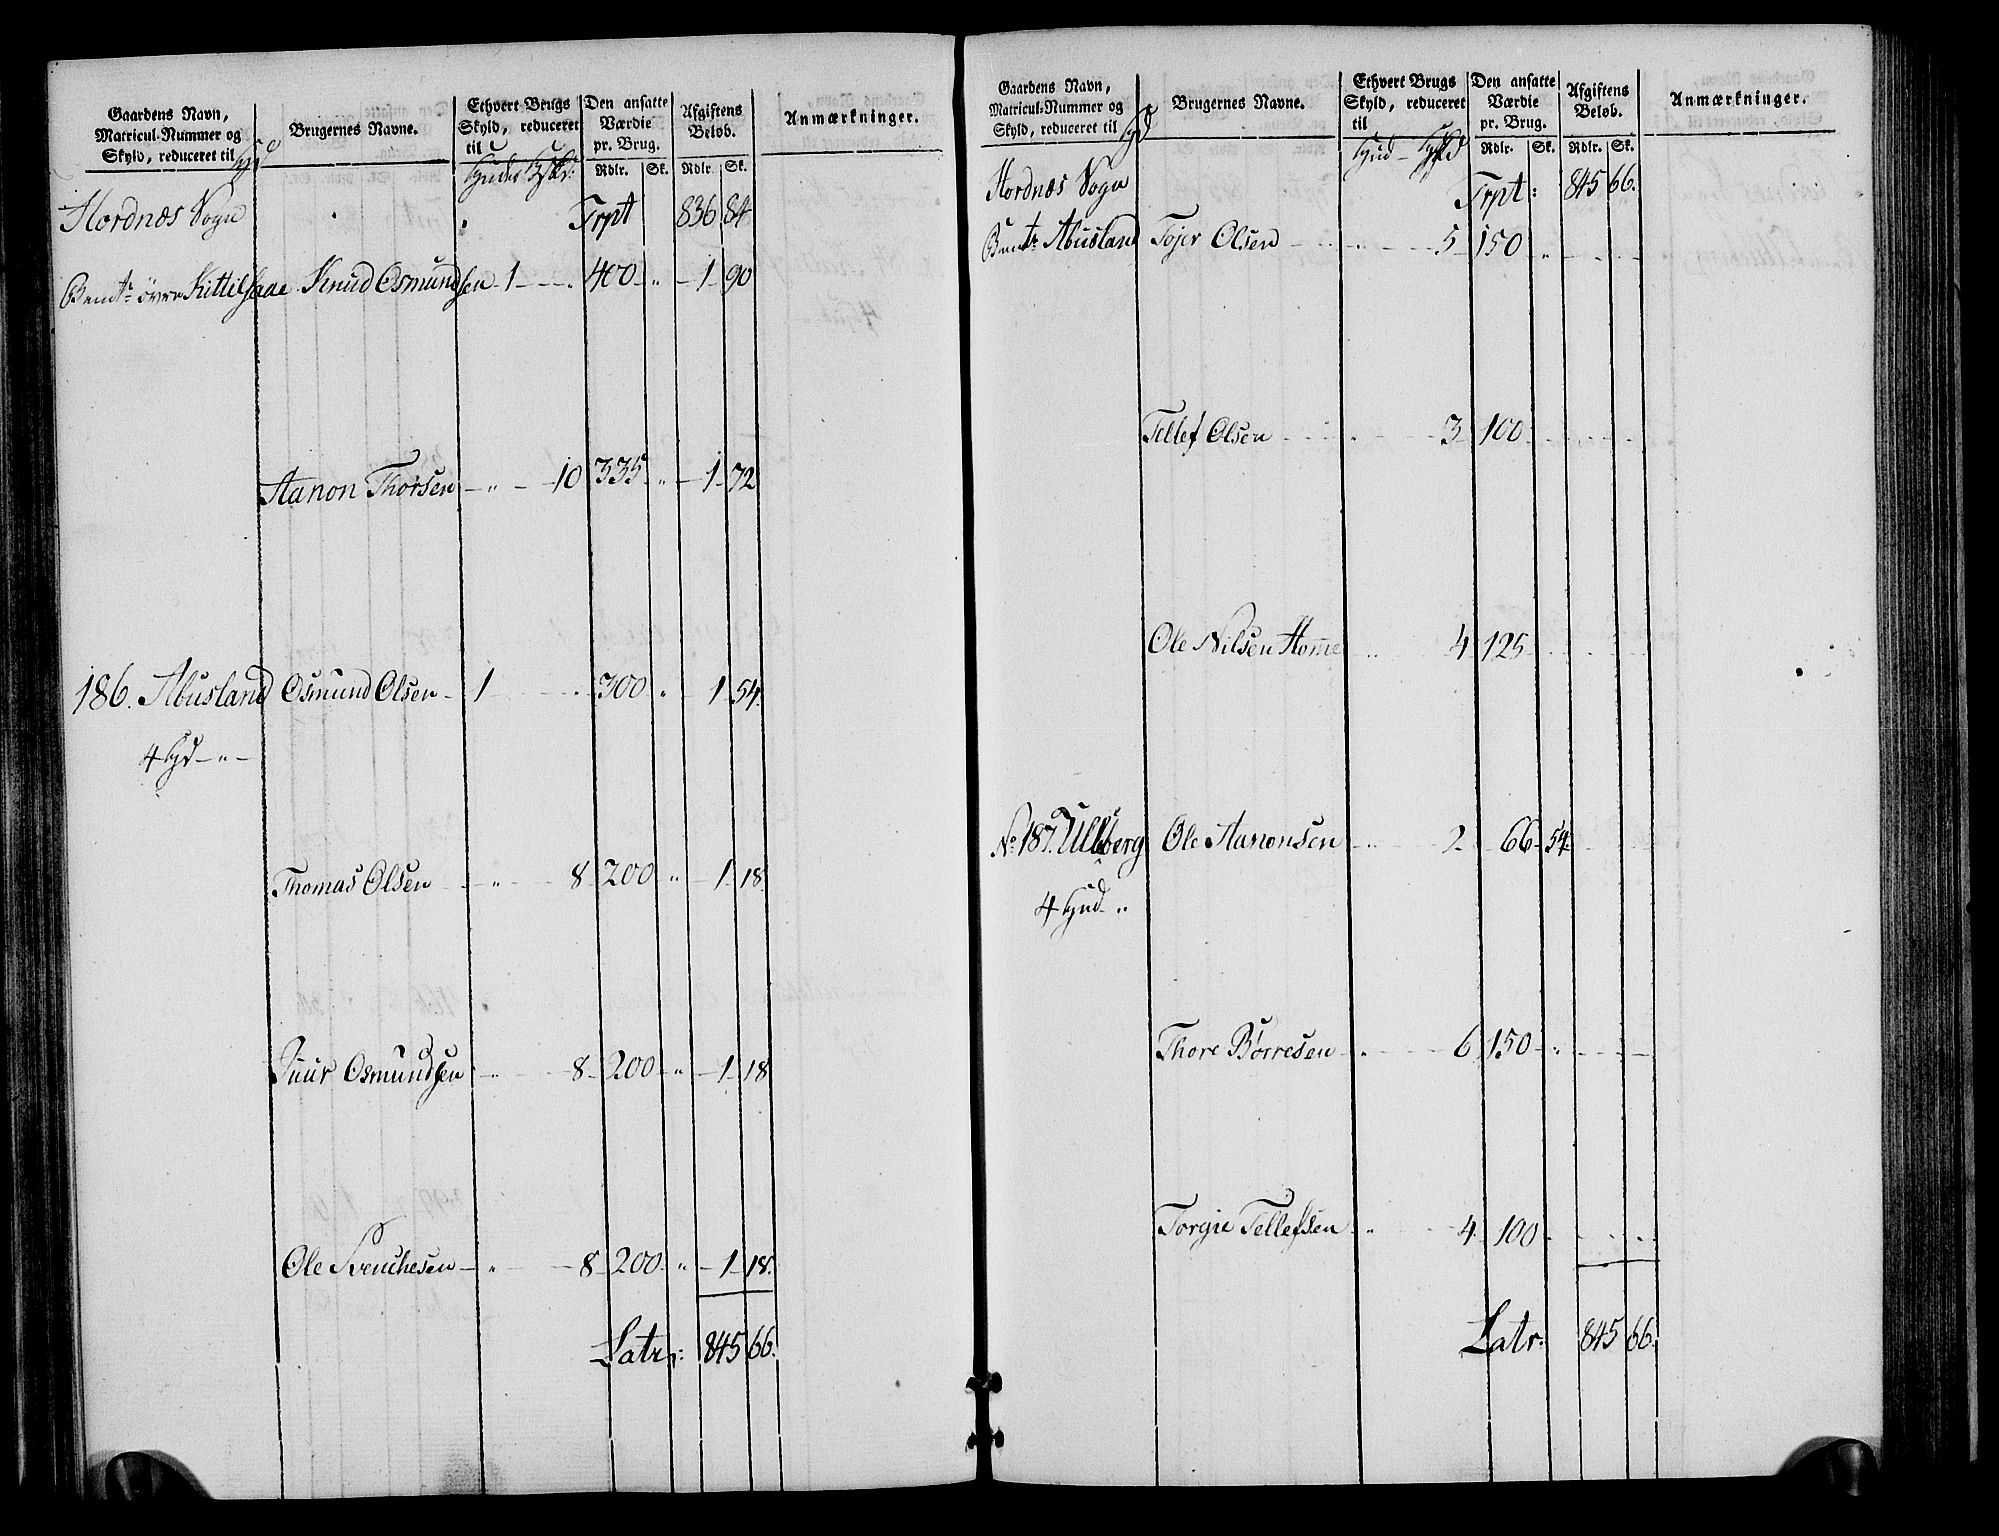 Gaardens Navn,
Matricul-Nummer og
Skyld, reduceret til
Brugernes Navne.
Ethvert Brugs
Skyld, reduceret
til
Den ansatte
Værdie
pr. Brug.
Rdlr. Sk.
Afgiftens
Beløb.
Rdlr. Sk.
Anmærkninger.
Hordnæs Sogn Trpt 836 84
Bemte øvre Kittilsaae Knud Osmundsen 1 - - . 400 - " - 1 - 90
Aanon Thorsen - " - 10 335 " - 1 - 72
186. Abusland Osmund Olsen - 1 - - . 300 " 1 54.
4 hud - " -
Thomas Olsen - " - 8 - 200 " - 1 - 18
Siur Osmundsen - " - 8 - 200 - " - 1 - 18
Ole Svenchesen - " - 8 - 200 - " - 1 - 18.
Latr: 845 66.
Gaardens Navn,
Matricul-Nummer og
Skyld, reduceret til
Brugernes Navne.
Ethvert Brugs
Skyld, reduceret
til
Den ansatte
Værdie
pr. Brug.
Rdlr. Sk.
Afgiftens
Beløb.
Rdlr. Sk.
Anmærkninger.
Hordnæs Sogn Trpt: 845 66.
Bemte Abusland Tojer Olsen - " - 5 - 150 "
Tellef Olsen - " - 3 100
Ole Nilsen Home " 4 125
No 187. Ulleberg Ole Aanonsen - " - 2 66 54.
4 hud "
Thore Børresen - " - 6 150 - "
Torgie Tellefsen " - 4 100
Latr: 845 66.